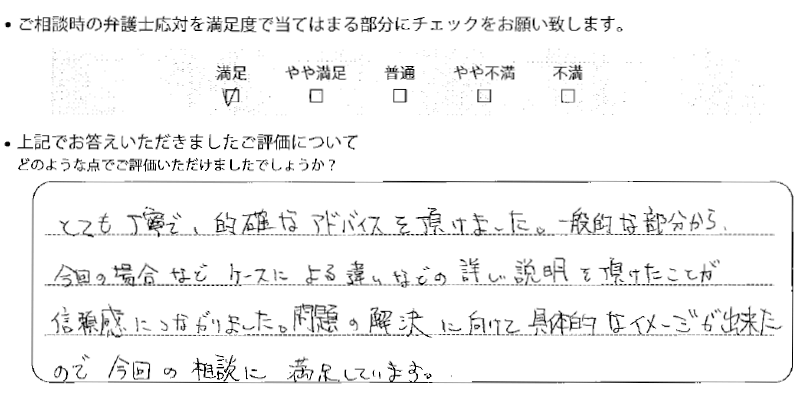 • ご相談時の弁護士応対を満足度で当てはまる部分にチェックをお願い致します。
満足 やや満足 普通 やや不満 不満
• 上記でお答えいただきましたご評価について
どのような点でご評価いただけましたでしょうか？
とても丁寧で、的確なアドバイスを頂けました。一般的な部分から、
今回の場合などケースによる違いなどの詳しい説明を頂けたことが
信頼感につながりました。問題の解決に向けて具体的なイメージが出来た
ので今回の相談に満足しています。